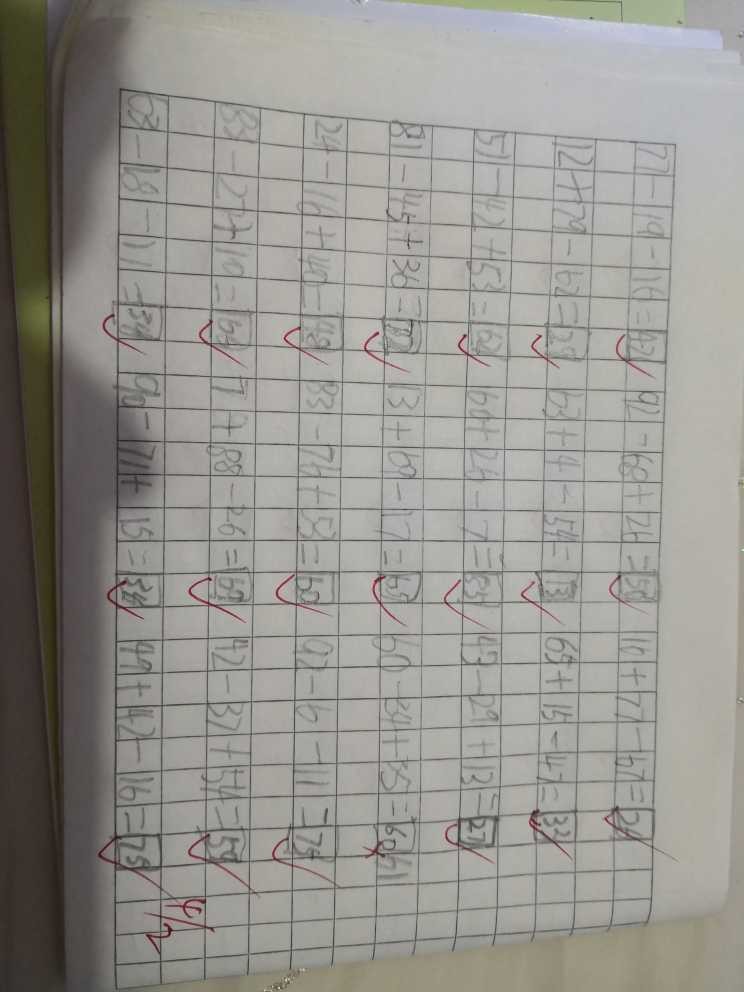 77-19-16=42 92-68+26=50 14+77-67=24
12+79-62=29 63+4-54=13 65+15-47=33
51-42+53=62 64+26-7=83 43-29+13=27
81-45+36=72 13+69-17=65 60-34+35=60 61
24-16+40=48 83-76+53=60 92-6-11=75
81-27+10=64 7+88-26=69 42-37+54=59
63-18-11=34 90-71+15=34 49+42-16=75
4/2